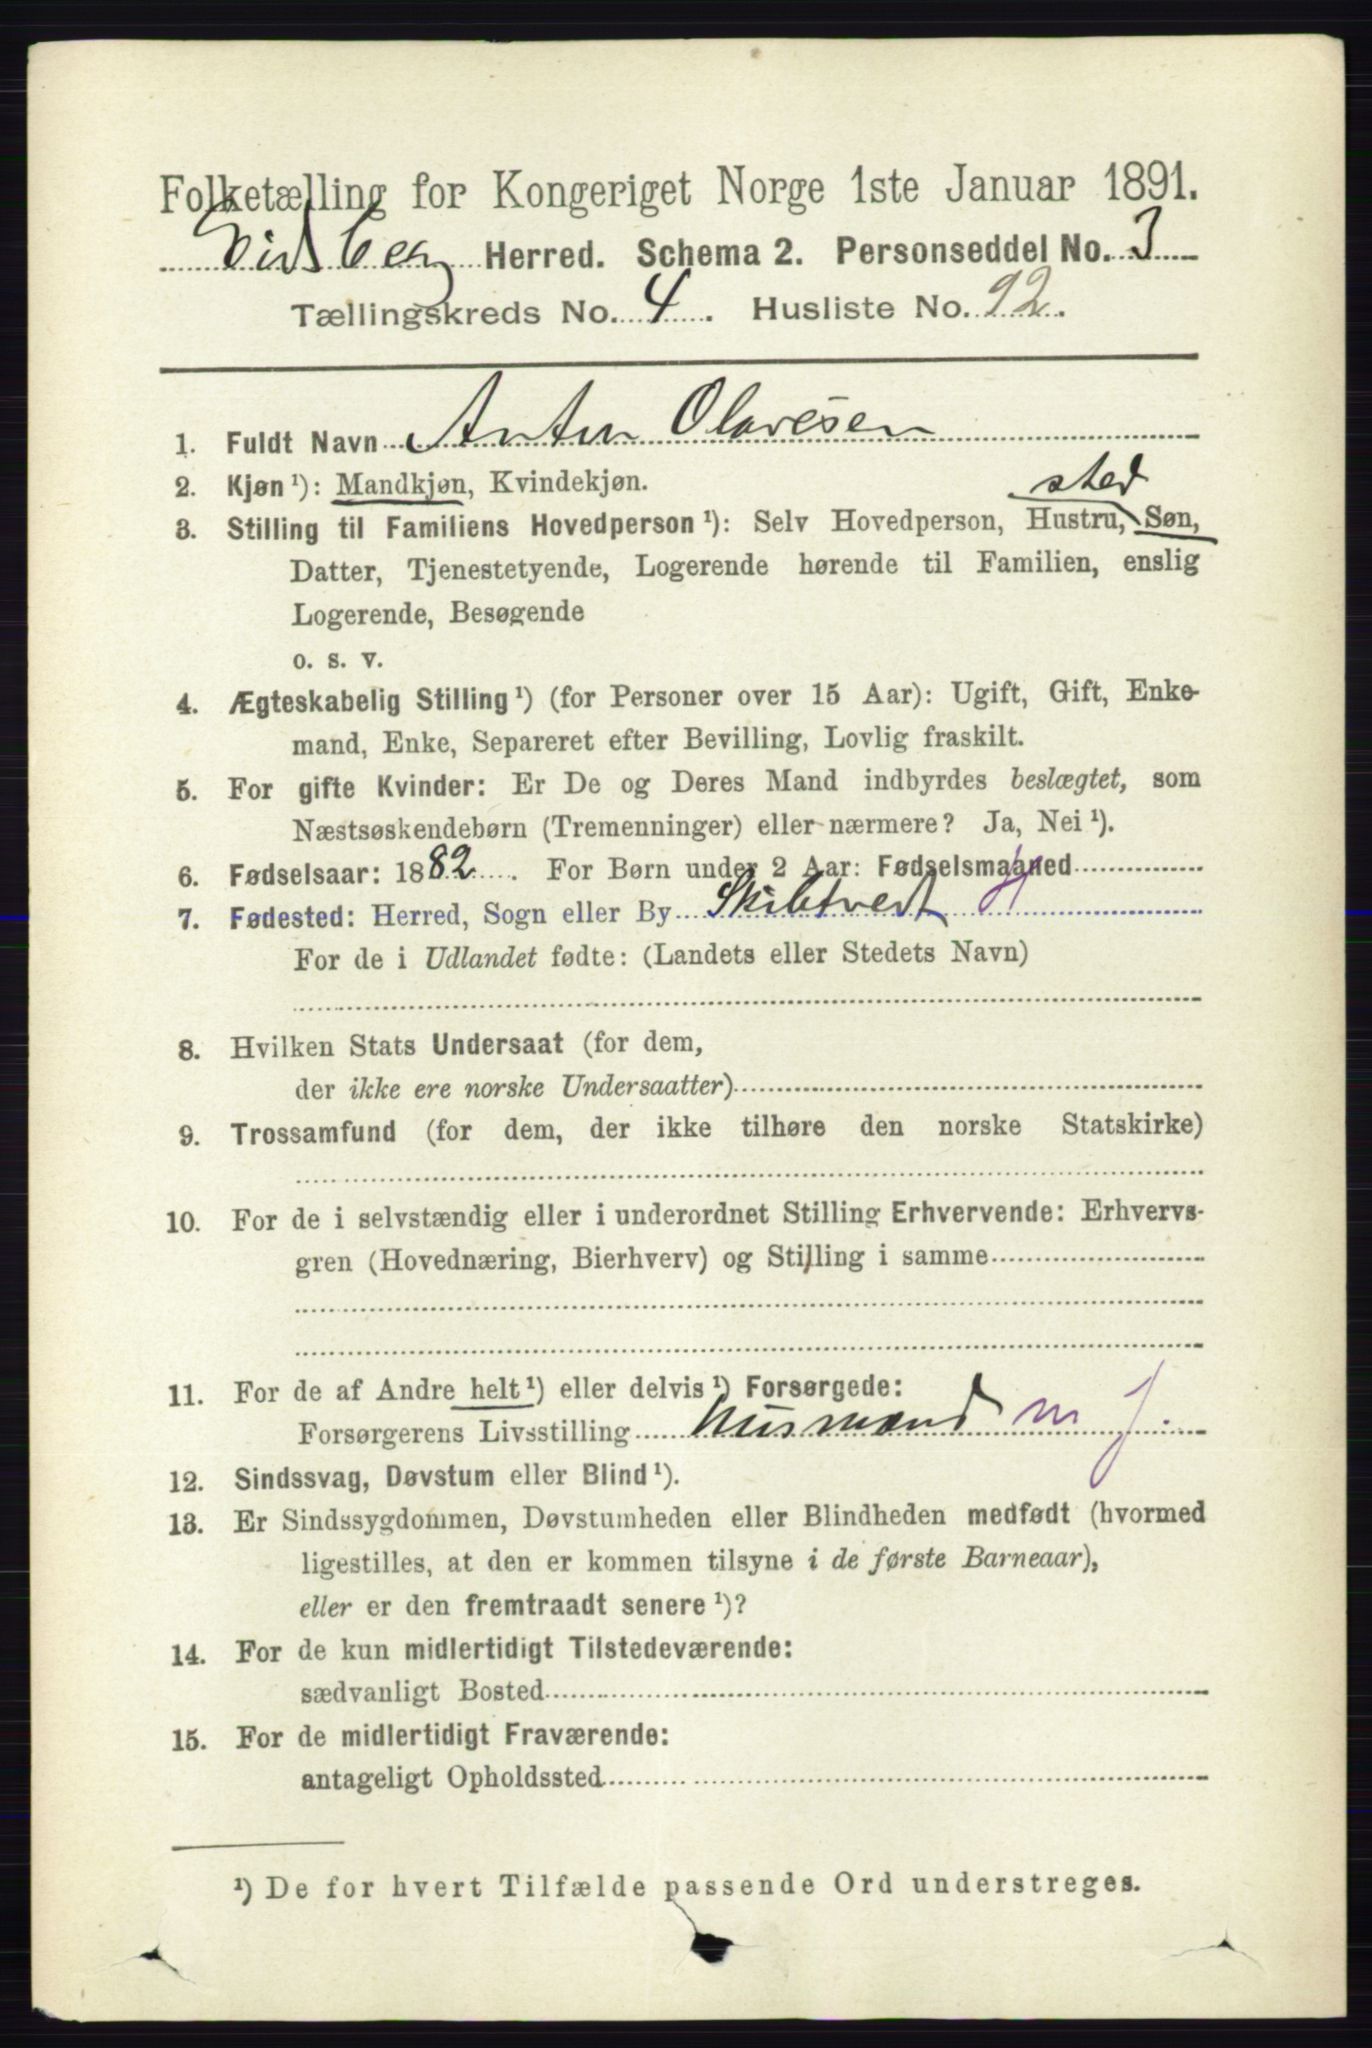 Folketælling for Kongeriget Norge 1ste Januar 1891.
Eidsberg Herred. Schema 2. Personseddel No. 3
Tællingskreds No. 4. Husliste No. 92.
1. Fuldt Navn Anton Olavesen
2. Kjøn¹): Mandkjøn, Kvindekjøn.
sted
3. Stilling til Familiens Hovedperson¹): Selv Hovedperson, Hustru, Søn,
Datter, Tjenestetyende, Logerende hørende til Familien, enslig
Logerende, Besøgende
o. s. v.
4. Ægteskabelig Stilling¹) (for Personer over 15 Aar): Ugift, Gift, Enke-
mand, Enke, Separeret efter Bevilling, Lovlig fraskilt.
5. For gifte Kvinder: Er De og Deres Mand indbyrdes beslægtet, som
Næstsøskendebørn (Tremenninger) eller nærmere? Ja, Nei¹).
6. Fødselsaar: 1882. For Børn under 2 Aar: Fødselsmaaned
7. Fødested: Herred, Sogn eller By Skibtvedt H
For de i Udlandet fødte: (Landets eller Stedets Navn)
8. Hvilken Stats Undersaat (for dem,
der ikke ere norske Undersaatter)
9. Trossamfund (for dem, der ikke tilhøre den norske Statskirke)
10. For de i selvstændig eller i underordnet Stilling Erhvervende: Erhvervs-
gren (Hovednæring, Bierhverv) og Stilling i samme
11. For de af Andre helt¹) eller delvis¹) Forsørgede:
Forsørgerens Livsstilling Husmand m J.
12. Sindssvag, Døvstum eller Blind¹).
13. Er Sindssygdommen, Døvstumheden eller Blindheden medfødt (hvormed
ligestilles, at den er kommen tilsyne i de første Barneaar),
eller er den fremtraadt senere¹)?
14. For de kun midlertidigt Tilstedeværende:
sædvanligt Bosted
15. For de midlertidigt Fraværende:
antageligt Opholdssted
¹) De for hvert Tilfælde passende Ord understreges.